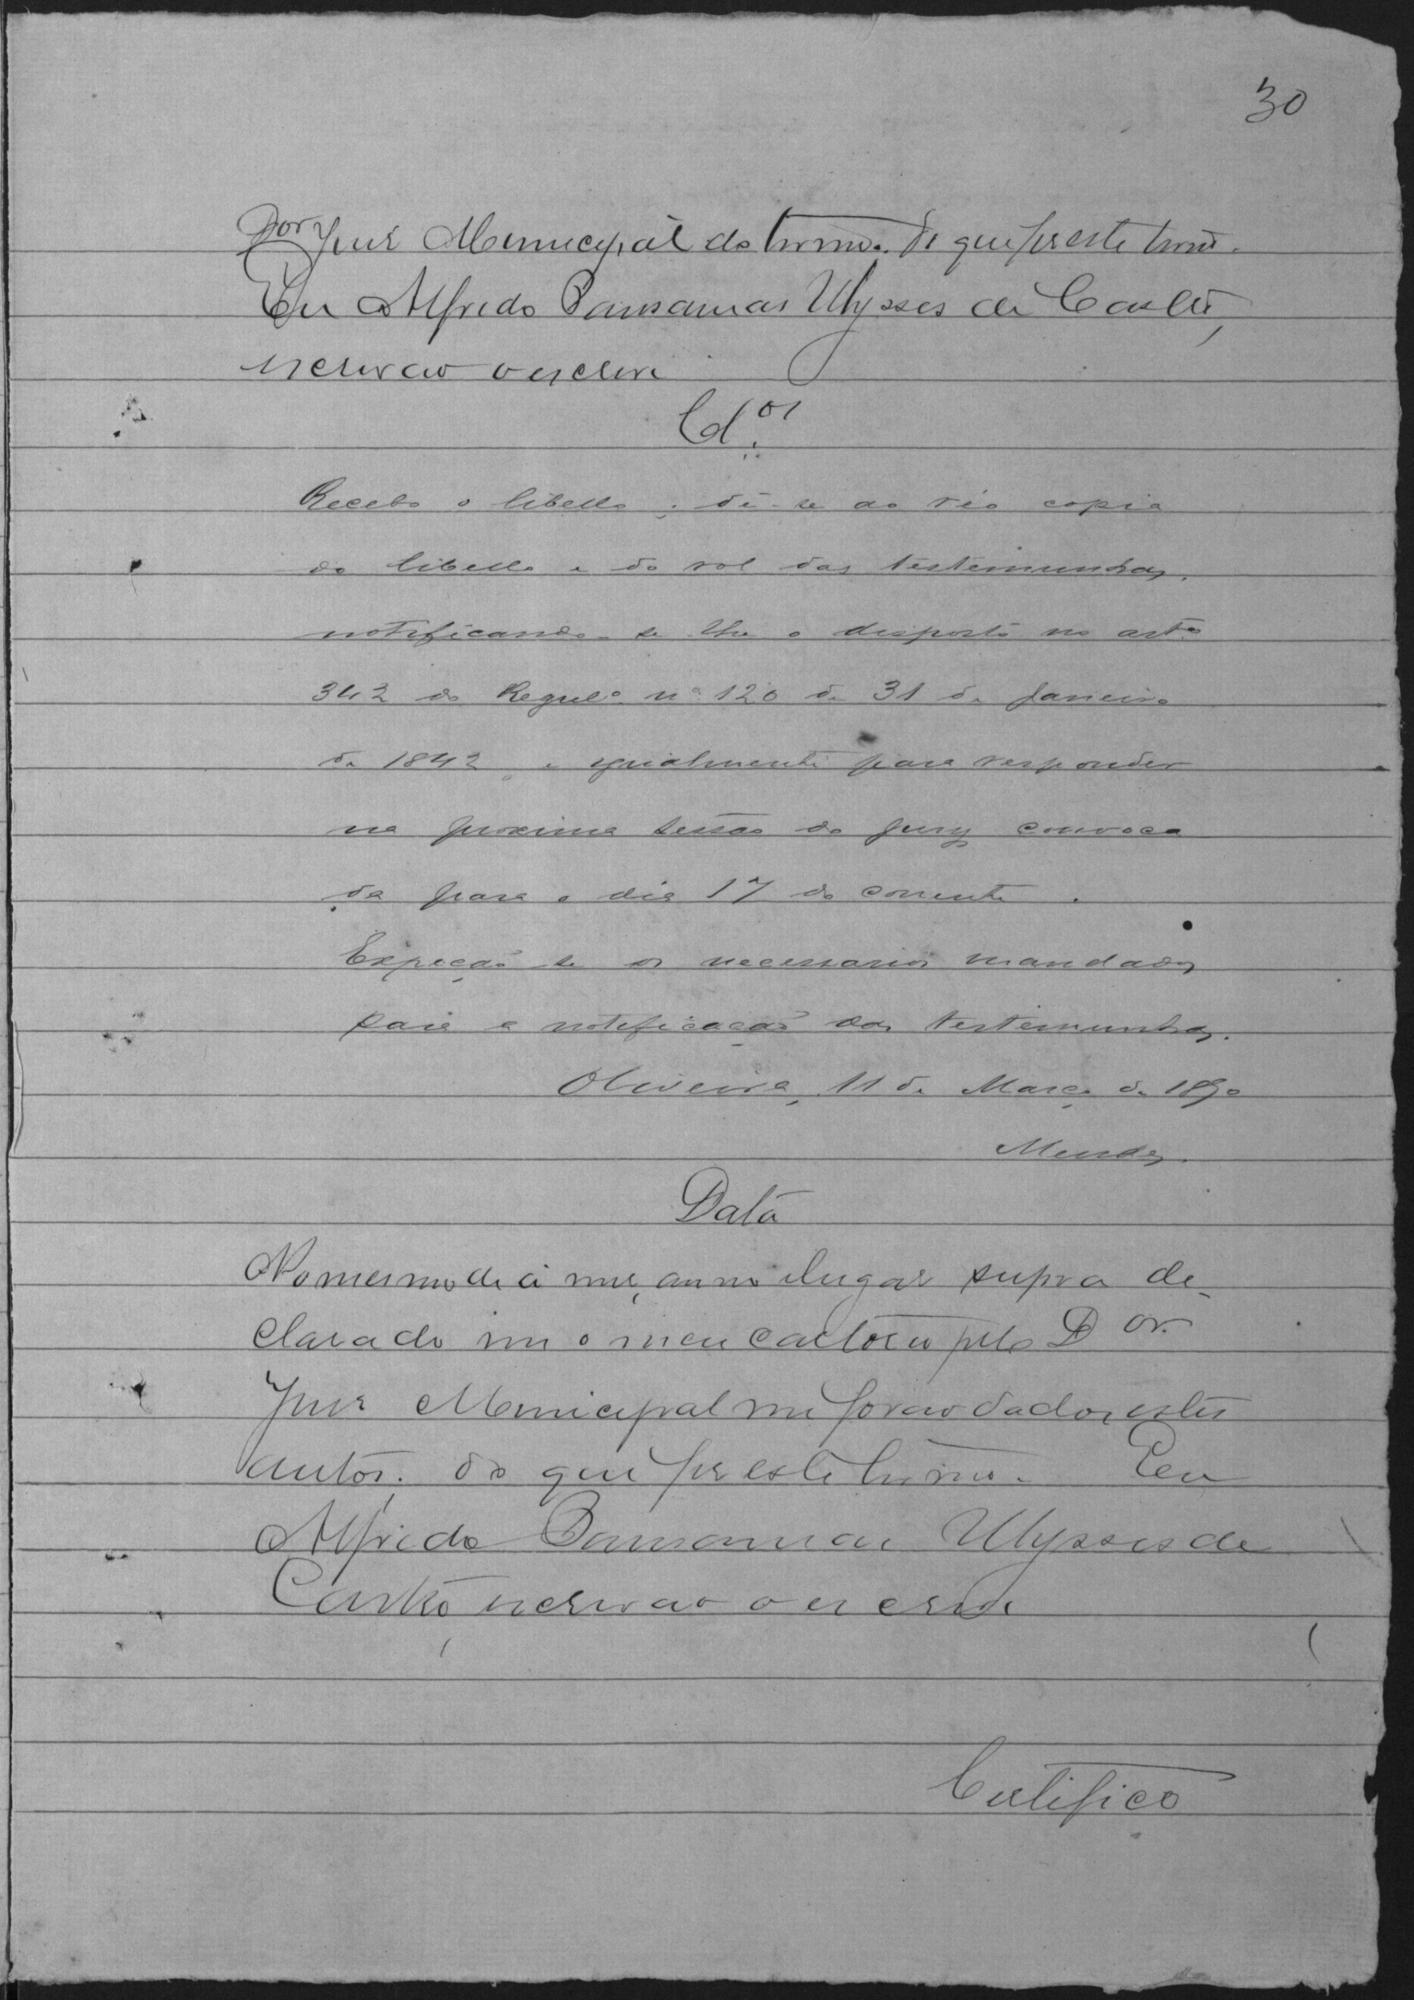 30
Dor Juis Municipal do termo. do que fis este termo.
Eu Alfredo Pausanias Ulysses de Castro,
escrivão o escrevi
Cl.os
Recebo o libello; dê-se ao réo copia
do libello e do rol das testemunhas,
notificando-se lhe o disposto no art.o
342 do Regul.o nº 120 de 31 de Janeiro
de 1842, e igualmente para responder
na proxima sessão do jury convoca
da para o dia 17 do corrente.
Expeção-se os necessarios mandados
para a notificação das testemunhas.
Oliveira, 11 de Março de 1890
Mendes.
Data
No mesmo dia mes, anno e lugar supra de-
clarado em o meu cartorio pelo Dor.
Juis Municipal me forão dados estes
autos. do que fis este termo. Eu
Alfredo Pausanias Ulysses de
Castro, escrivão o escrevi
Certifico